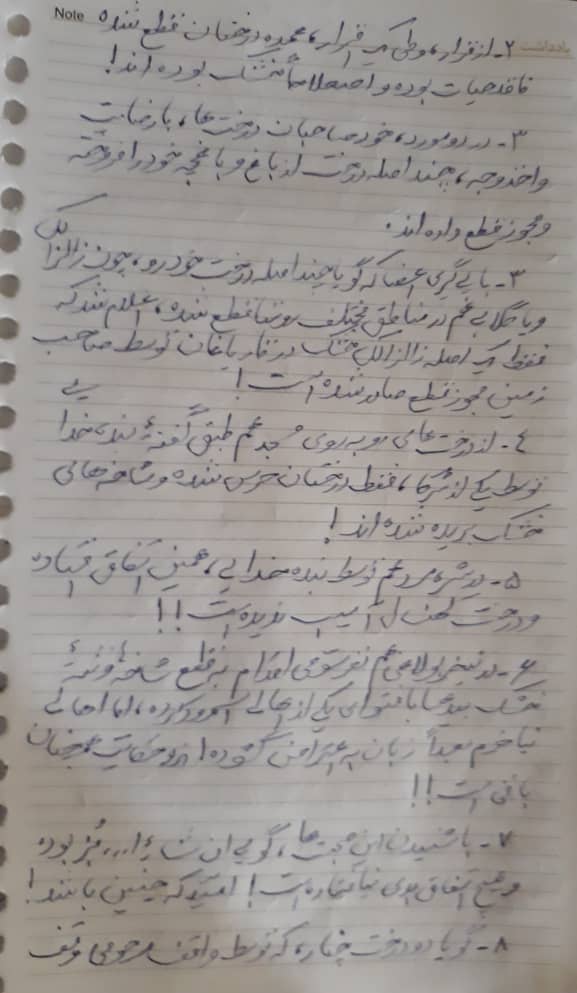 Note
یادداشت
۲- از قرار، وطی یک قرار، عمده درختان قطع شده
فاقد حیات بوده و اصطلاحاً خشک بوده اند!
۳- در دو مورد، خود صاحبان درخت ها، با رضایت
و اخذ وجه، چند اصله درخت از باغ و باغچه خود را فروخته
و مجوز قطع داده اند.
۳- با پیگیری اعضا که گویا چند اصله درخت خودرو، چون زالزالک
و یا گلابی هم در مناطق مختلف روستا قطع شده، اعلام شد که
فقط یک اصله زالزالک خشک در کنار باغان توسط صاحب
زمین مجوز قطع صادر شده است!
۴- از درخت های روبه روی مسجد هم طبق گفتهٔ بنده خدایی
توسط یکی از شرکا، فقط درختان حرس شده و شاخه های
خشک بریده شده اند!
۵- در هم توسط بنده خدایی، همین اتفاق افتاده
و درخت کهن سال آسیب ندیده است!!
۶- در هم نفر سومی اقدام به قطع شاخه و تنهٔ
خشک با فتوای یکی از اهالی کرده، اما اهالی
بعداً زبان به اعتراض گشوده اند و حکایت همچنان
باقی است!!
۷- با شنیدن این صحبت ها، گویی ان شاءا... بُز بوده
و هیچ اتفاق بدی نیافتاده است! امید که چنین باشد!
۸- گویا دو درخت چنار، که توسط واقف مرحومی وقف